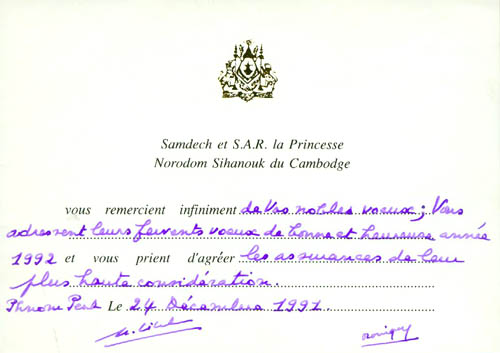 Samdech et S.A.R. la Princesse
Norodom Sihanouk du Cambodge
vous remercient infiniment de Vos nobles voeux; Vous
adressent leurs fervents voeux de bonne et heureuse année
1992 et vous prient d'agréer les assurances de leur
plus haute considération.
Phnom Penh Le 24 Décembre 1991.